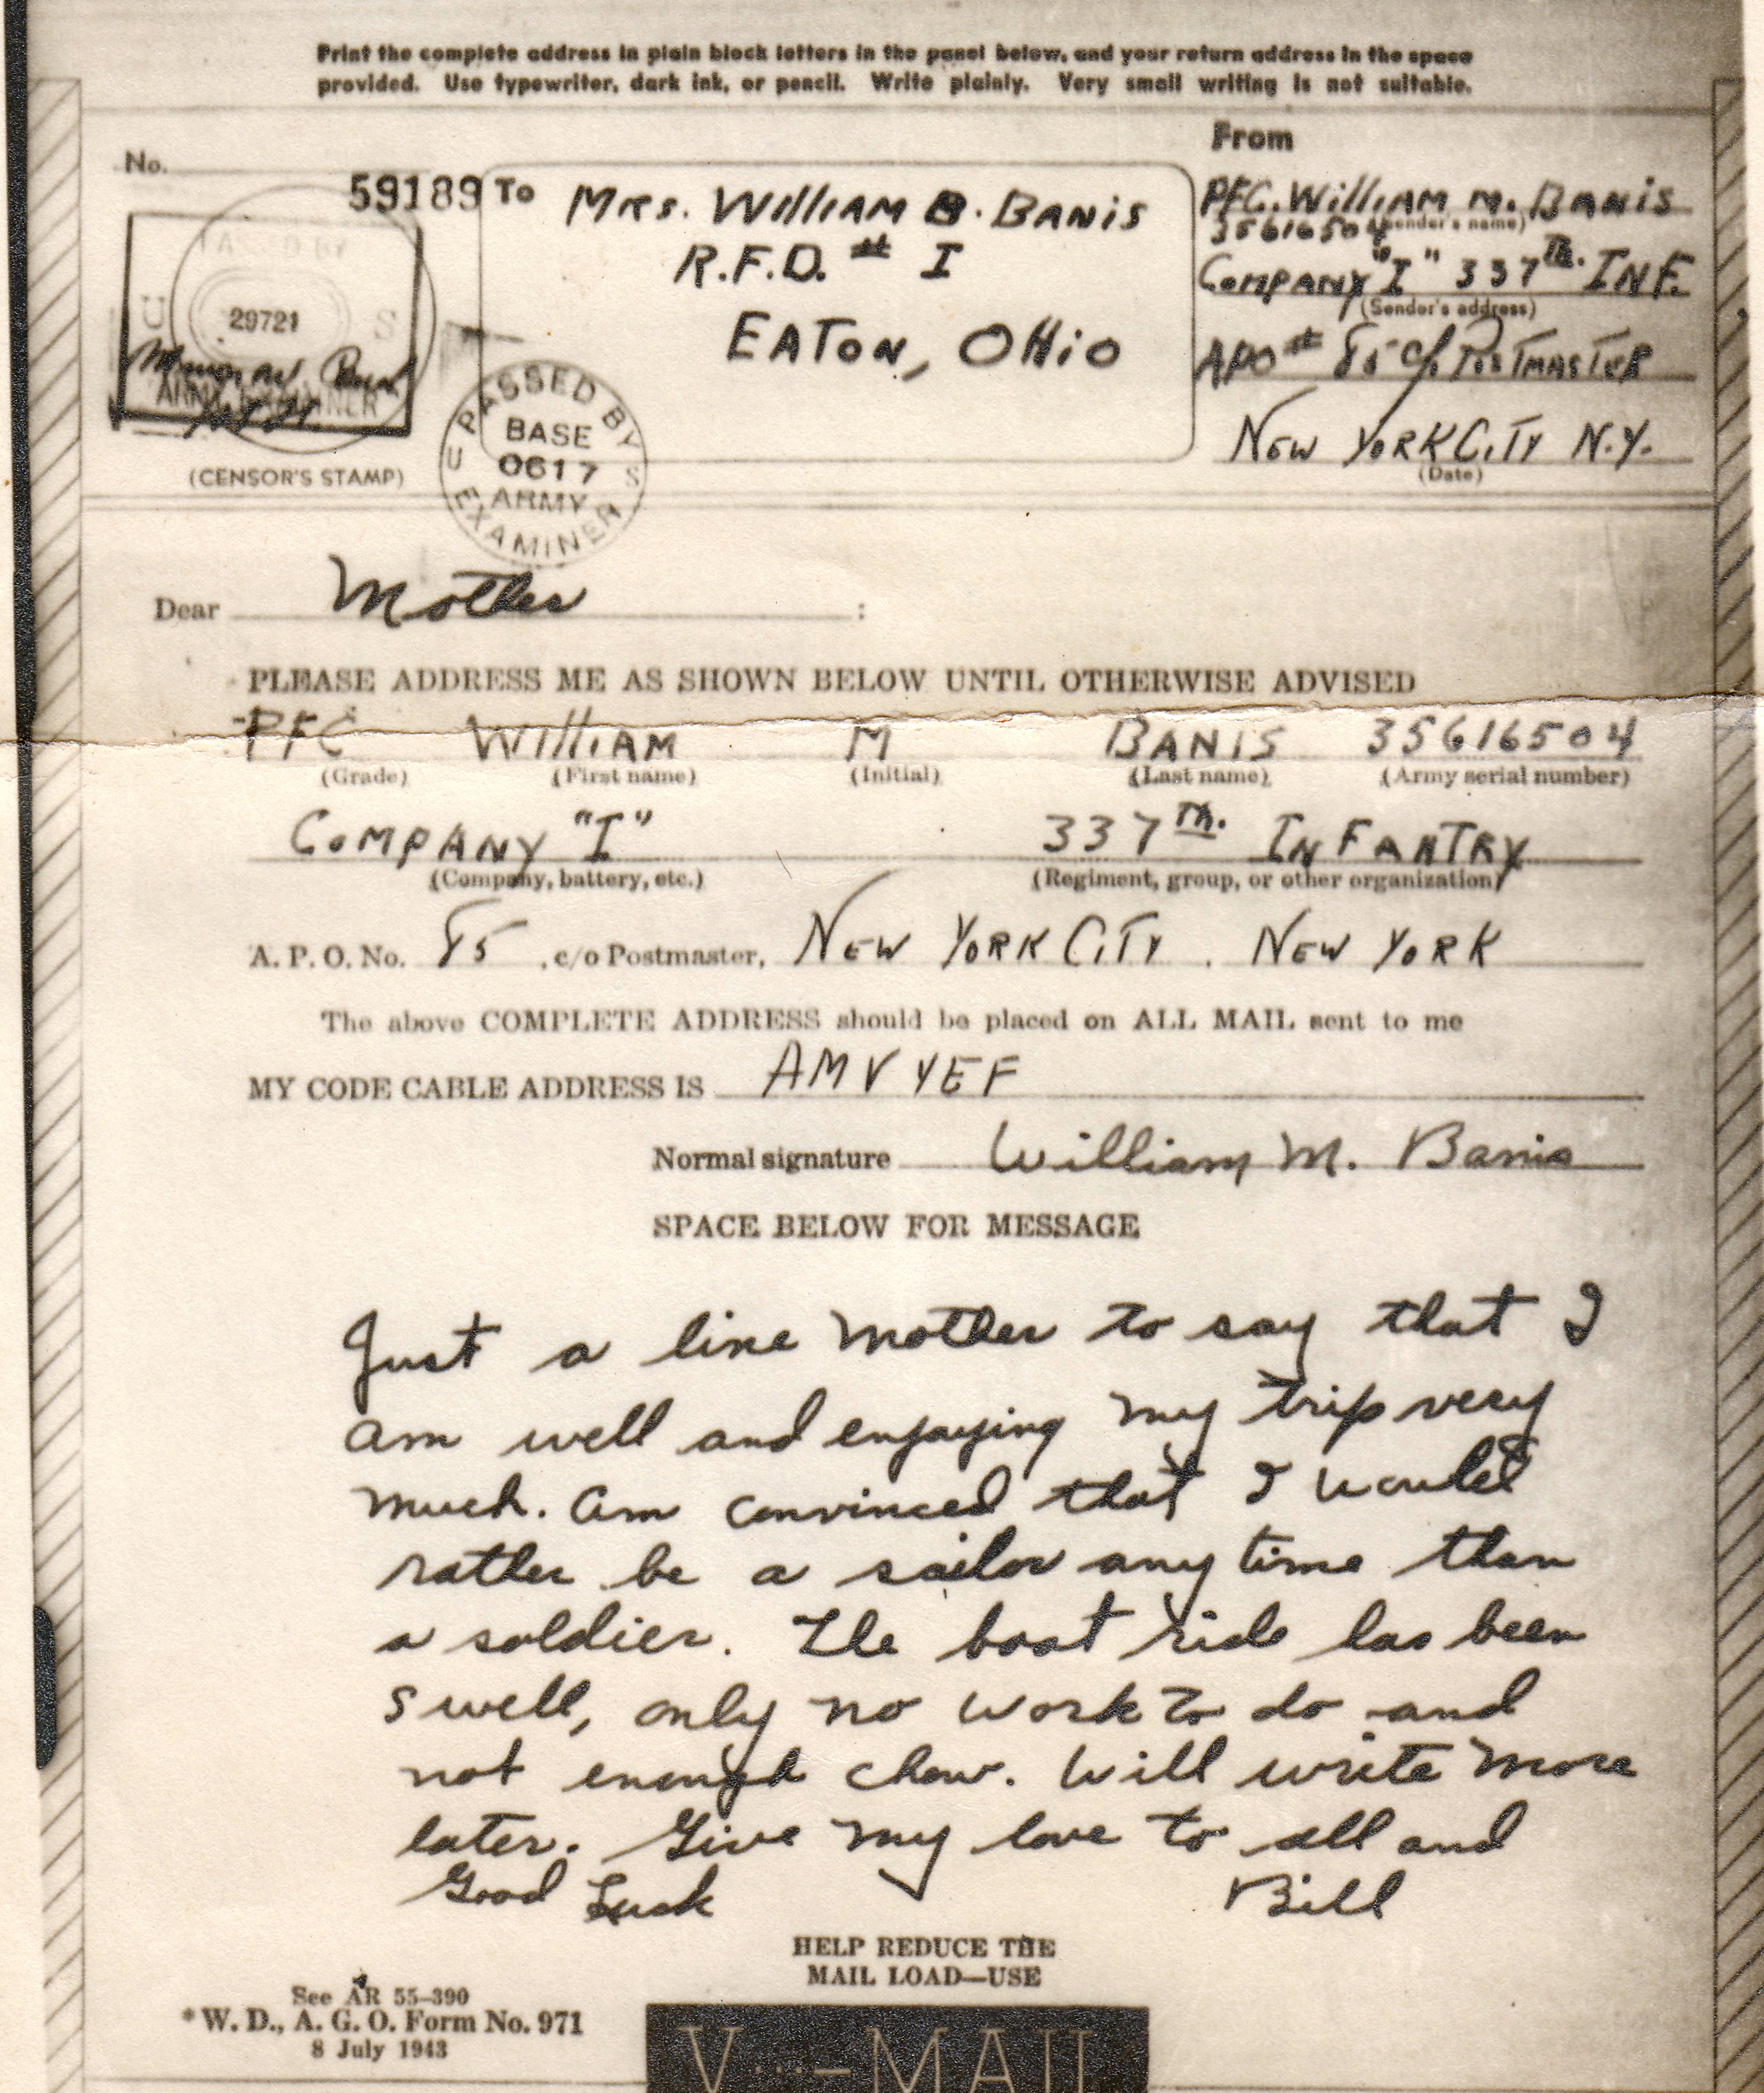 Print the complete address in plain block letters in the panel below, and your return address in the space
provided. Use typewriter, dark ink, or pencil. Write plainly. Very small writing is not suitable.
No.
59189
PASSED BY
U S
29721
ARMY EXAMINER
(CENSOR'S STAMP)
PASSED BY
BASE
0617
ARMY
EXAMINER
U S
To Mrs. William B. Banis
R.F.D. # I
EATON, OHio
From
PFC. William M. Banis
35616504 (Sender's name)
Company "I" 337th. INF.
(Sender's address)
APO # 85 c/o Postmaster
New York City N.Y.
(Date)
Dear Mother :
PLEASE ADDRESS ME AS SHOWN BELOW UNTIL OTHERWISE ADVISED
PFC William M BANIS 35616504
(Grade) (First name) (Initial) (Last name) (Army serial number)
Company "I" 337th. INFANTRY
(Company, battery, etc.) (Regiment, group, or other organization)
A. P. O. No. 85 , c/o Postmaster, New York City , New York
The above COMPLETE ADDRESS should be placed on ALL MAIL sent to me
MY CODE CABLE ADDRESS IS AMVYEF
Normal signature William M. Banis
SPACE BELOW FOR MESSAGE
Just a line Mother to say that I
am well and enjoying my trip very
much. Am convinced that I would
rather be a sailor any time than
a soldier. The boat ride has been
swell, only no work to do and
not enough chow. Will write more
later. Give my love to all and
Good Luck Bill
HELP REDUCE THE
MAIL LOAD—USE
V···—MAIL
See AR 55–390
*W. D., A. G. O. Form No. 971
8 July 1943